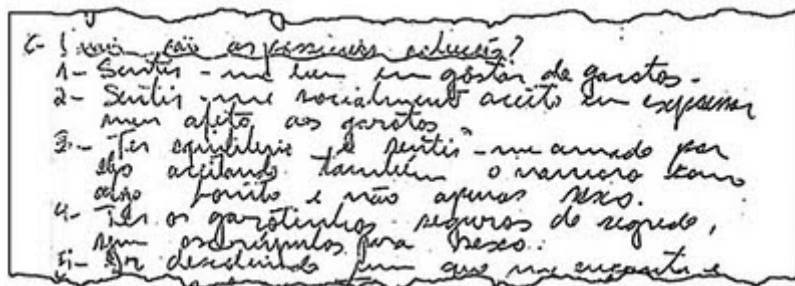 C- Quais são as possíveis soluções?
1- Sentir-me bem em gostar de garotos.
2- Sentir-me socialmente aceito em expressar
meu afeto aos garotos
3- Ter equilíbrio e sentir-me amado por
eles aceitando também o namoro como
algo bonito e não apenas sexo.
4- Ter os garotinhos seguros do segredo,
sem para sexo.
5- Ir descobrindo que me e